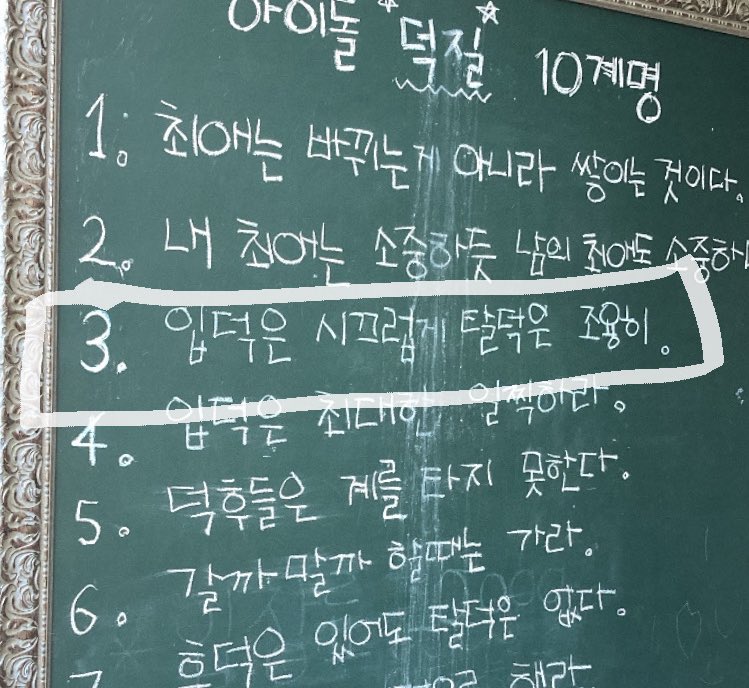 아이돌 덕질 10계명
1. 최애는 바뀌는게 아니라 쌓이는 것이다.
2. 내 최애는 소중하듯 남의 최애도 소중하
3. 입덕은 시끄럽게 탈덕은 조용히.
4. 입덕은 최대한 일찍하라.
5. 덕후들은 계를 타지 못한다.
6. 갈까말까 할때는 가라.
7. 휴덕은 있어도 탈덕은 없다.
해라.